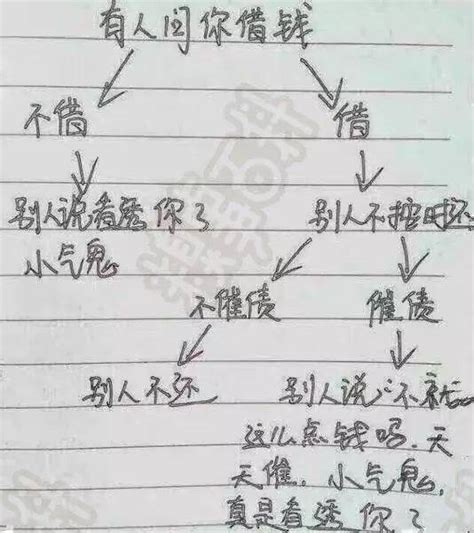 有人问你借钱
不借
借
别人说看透你了
小气鬼
别人不按时还
不催债
催债
别人不还
别人说:"不就
这么点钱吗,天
天催,小气鬼,
真是看透你了